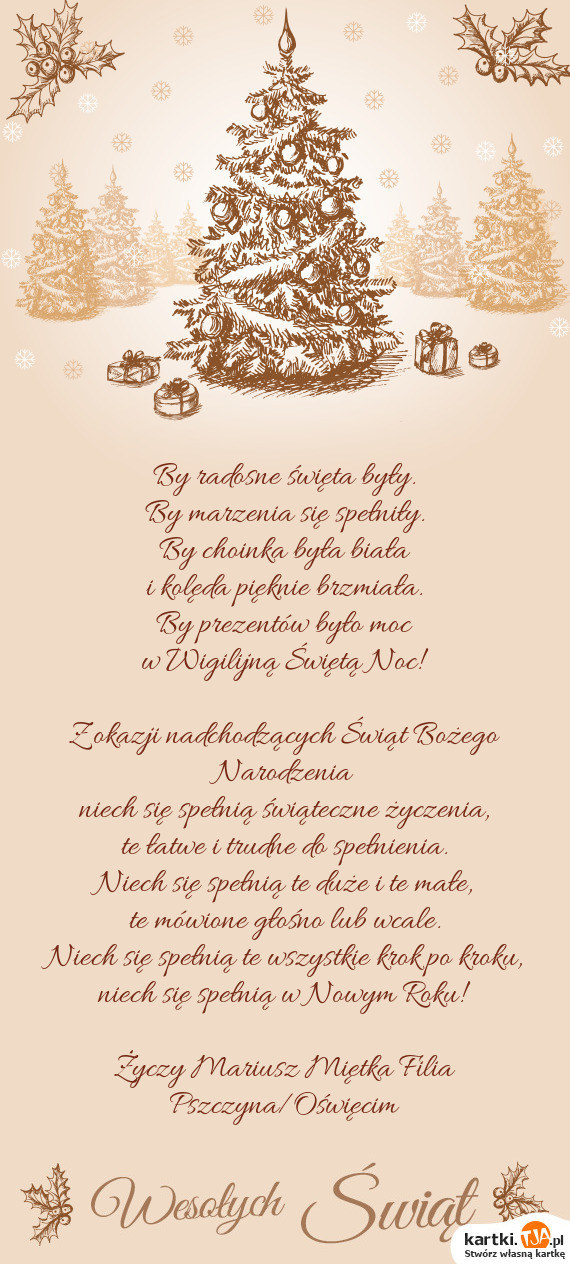 By radosne święta były.
By marzenia się spełniły.
By choinka była biała
i kolęda pięknie brzmiała.
By prezentów było moc
w Wigilijną Świętą Noc!
Z okazji nadchodzących Świąt Bożego
Narodzenia
niech się spełnią świąteczne życzenia,
te łatwe i trudne do spełnienia.
Niech się spełnią te duże i te małe,
te mówione głośno lub wcale.
Niech się spełnią te wszystkie krok po kroku,
niech się spełnią w Nowym Roku!
Życzy Mariusz Miętka Filia
Pszczyna/Oświęcim
Wesołych Świąt
kartki.TJA.pl
Stwórz własną kartkę